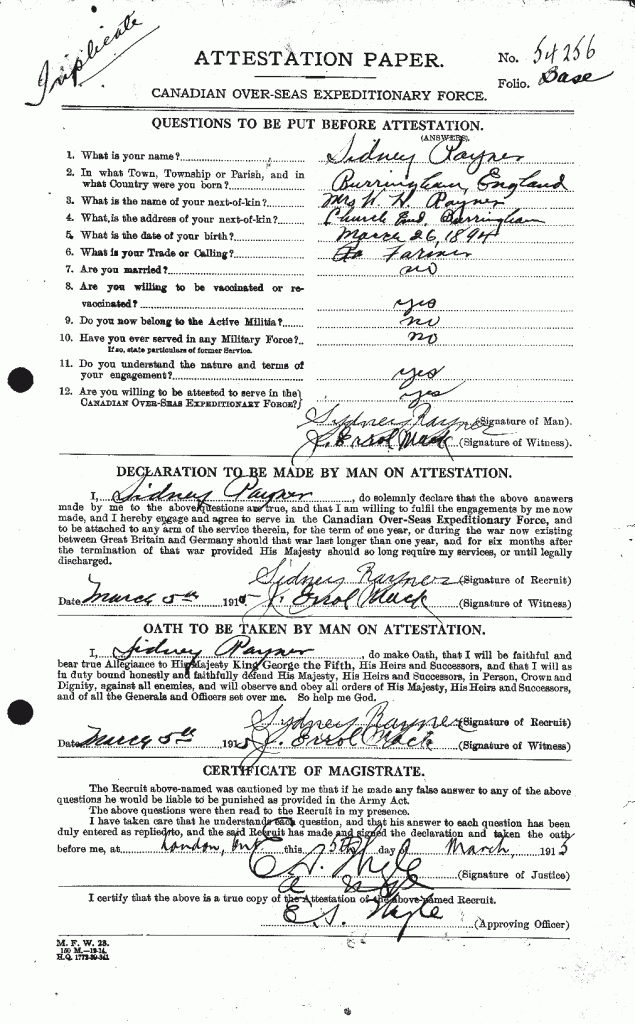 Triplicate
ATTESTATION PAPER.
No. 54256
Folio. Base
CANADIAN OVER-SEAS EXPEDITIONARY FORCE.
QUESTIONS TO BE PUT BEFORE ATTESTATION.
(ANSWERS).
1. What is your name? Sidney Rayner
2. In what Town, Township or Parish, and in
what Country were you born? Burringham, England
3. What is the name of your next-of-kin? Mrs W. H. Rayner
4. What is the address of your next-of-kin? Church End, Burringham
5. What is the date of your birth? March 26, 1894
6. What is your Trade or Calling? Farmer
7. Are you married? no
8. Are you willing to be vaccinated or re-
vaccinated? yes
9. Do you now belong to the Active Militia? no
10. Have you ever served in any Military Force? no
If so, state particulars of former Service.
11. Do you understand the nature and terms of
your engagement? yes
12. Are you willing to be attested to serve in the
CANADIAN OVER-SEAS EXPEDITIONARY FORCE? yes
Sydney Rayner (Signature of Man).
J. Errol Mack (Signature of Witness).
DECLARATION TO BE MADE BY MAN ON ATTESTATION.
I, Sidney Rayner, do solemnly declare that the above answers
made by me to the above questions are true, and that I am willing to fulfil the engagements by me now
made, and I hereby engage and agree to serve in the Canadian Over-Seas Expeditionary Force, and
to be attached to any arm of the service therein, for the term of one year, or during the war now existing
between Great Britain and Germany should that war last longer than one year, and for six months after
the termination of that war provided His Majesty should so long require my services, or until legally
discharged.
Sidney Rayner (Signature of Recruit)
Date March 5th 1915 J. Errol Mack (Signature of Witness)
OATH TO BE TAKEN BY MAN ON ATTESTATION.
I, Sidney Rayner, do make Oath, that I will be faithful and
bear true Allegiance to His Majesty King George the Fifth, His Heirs and Successors, and that I will as
in duty bound honestly and faithfully defend His Majesty, His Heirs and Successors, in Person, Crown and
Dignity, against all enemies, and will observe and obey all orders of His Majesty, His Heirs and Successors,
and of all the Generals and Officers set over me. So help me God.
Sydney Rayner (Signature of Recruit)
Date March 5th 1915 J. Errol Mack (Signature of Witness)
CERTIFICATE OF MAGISTRATE.
The Recruit above-named was cautioned by me that if he made any false answer to any of the above
questions he would be liable to be punished as provided in the Army Act.
The above questions were then read to the Recruit in my presence.
I have taken care that he understands each question, and that his answer to each question has been
duly entered as replied to, and the said Recruit has made and signed the declaration and taken the oath
before me, at London, Ont this 5th day of March, 1915
(Signature of Justice)
I certify that the above is a true copy of the Attestation of the above-named Recruit.
(Approving Officer)
M. F. W. 23.
150 M.—12-14.
H.Q. 1772-39-241